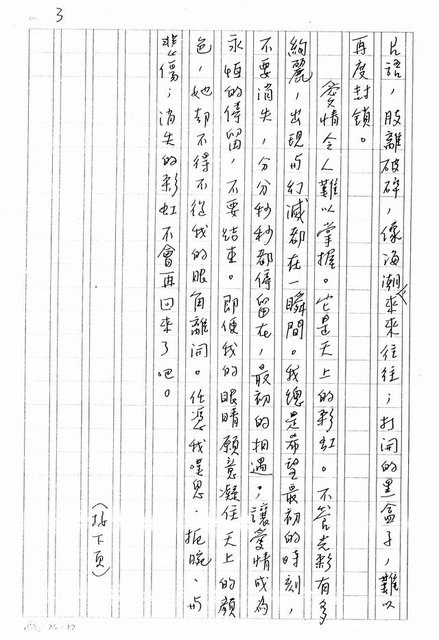 3
片語，肢離破碎，像海潮來來往往；打開的黑盒子，難以
再度封鎖。
愛情令人難以掌握。它是天上的彩虹。不管光彩有多
絢麗，出現與幻滅都在一瞬間。我總是希望最初的時刻，
不要消失，分分秒秒都停留在，最初的相遇；讓愛情成為
永恒的停留，不要結束。即便我的眼睛願意凝住天上的顏
色，她却不得不從我的眼角離開。任憑我嘆息、扼腕、與
悲傷；消失的彩虹不會再回來了吧。
（接下頁）